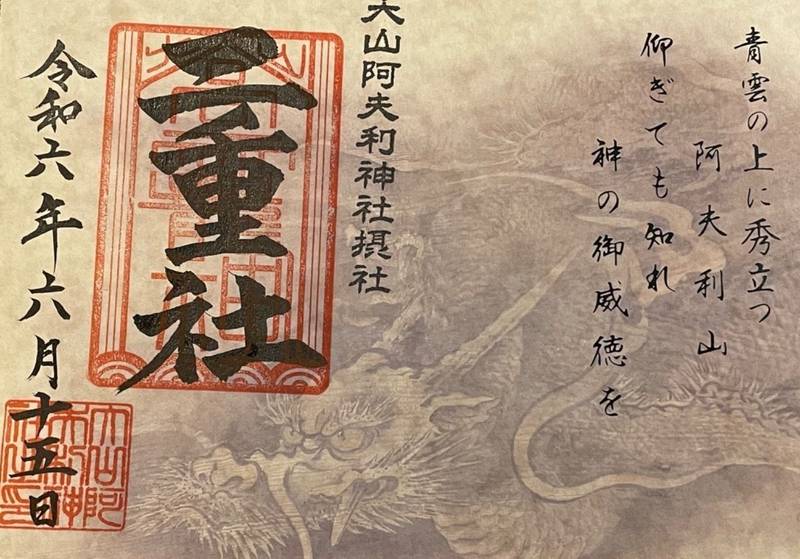 青雲の上に秀立つ
阿夫利山
仰ぎても知れ
神の御威徳を
大山阿夫利神社摂社
二重社
令和六年六月十五日